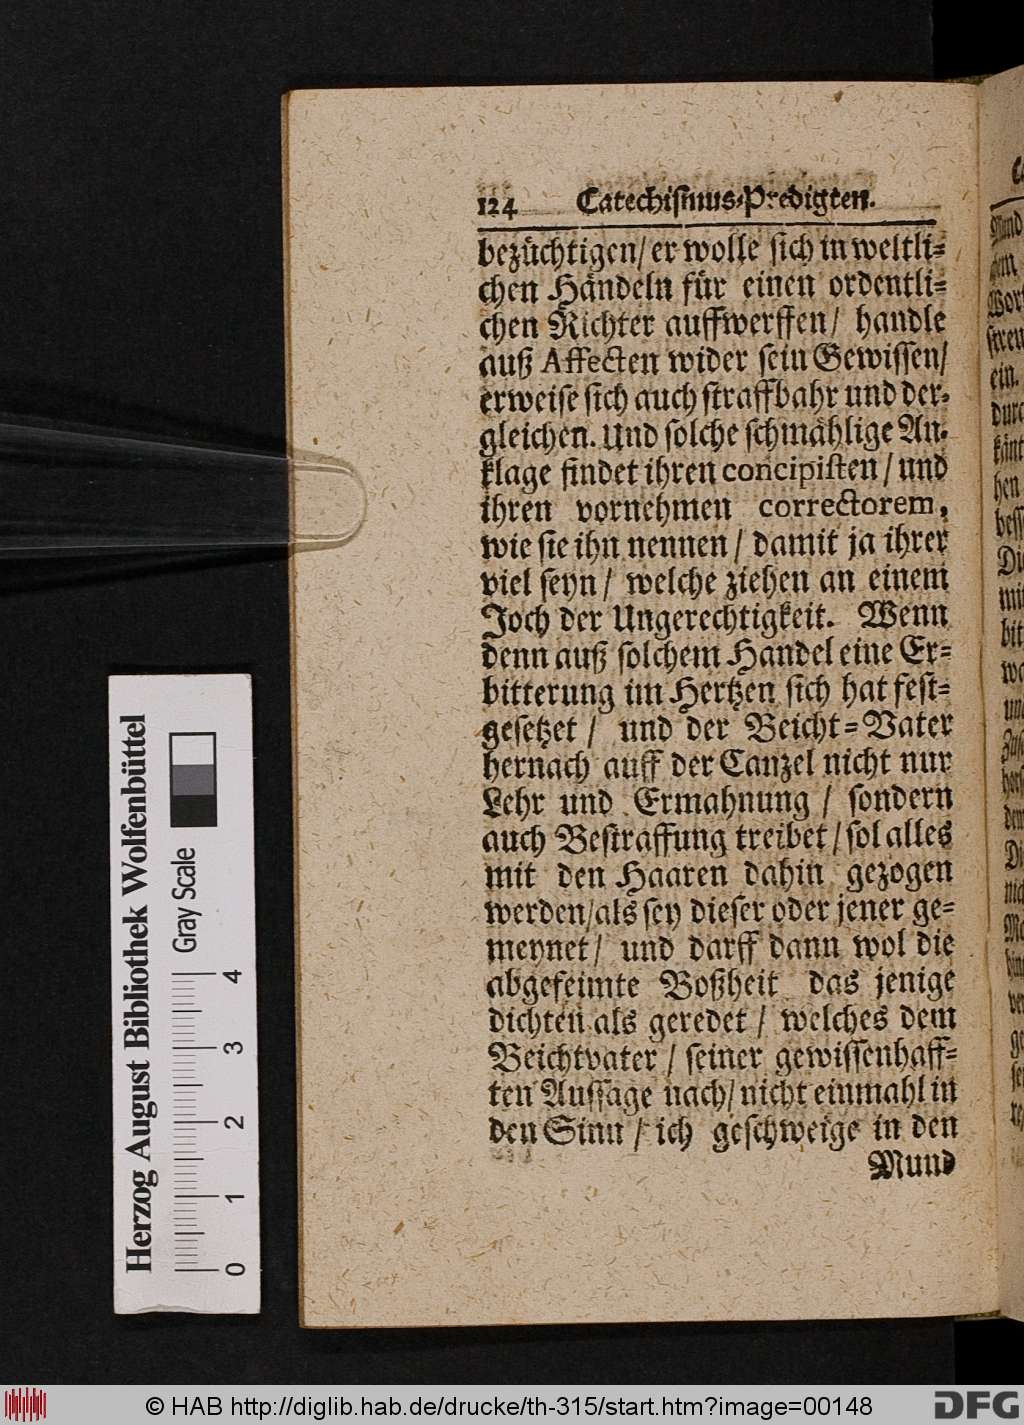 124 Catechismus-Predigten.
bezüchtigen/ er wolle sich in weltli-
chen Händeln für einen ordentli-
chen Richter auffwerffen/ handle
auß Affecten wider sein Gewissen/
erweise sich auch straffbahr und der-
gleichen. Und solche schmählige An-
klage findet ihren concipisten / und
ihren vornehmen correctorem,
wie sie ihn nennen / damit ja ihrer
viel seyn / welche ziehen an einem
Joch der Ungerechtigkeit. Wenn
denn auß solchem Handel eine Er-
bitterung im Hertzen sich hat fest-
gesetzet / und der Beicht-Vater
hernach auff der Canzel nicht nur
Lehr und Ermahnung / sondern
auch Bestraffung treibet / sol alles
mit den Haaren dahin gezogen
werden/als sey dieser oder jener ge-
meynet / und darff dann wol die
abgefeimte Boßheit das jenige
dichten als geredet / welches dem
Beichtvater / seiner gewissenhaff-
ten Aussage nach/ nicht einmahl in
den Sinn / ich geschweige in den
Mund
Herzog August Bibliothek Wolfenbüttel
Gray Scale
0 1 2 3 4
© HAB http://diglib.hab.de/drucke/th-315/start.htm?image=00148
DFG